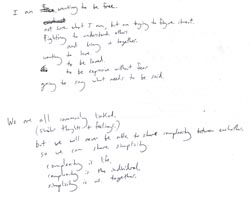 I am wanting to be free.
not sure what I am, but am trying to figure it out.
Fighting to understand others
and bring us together.
wanting to love
to be loved.
to be expressive without fear
going to say what needs to be said.
We are all commonly linked,
(similar thoughts & feelings)
but we will never be able to share complexity between each other.
so we can share simplicity
complexity is life,
complexity is the individual,
simplicity is us together.